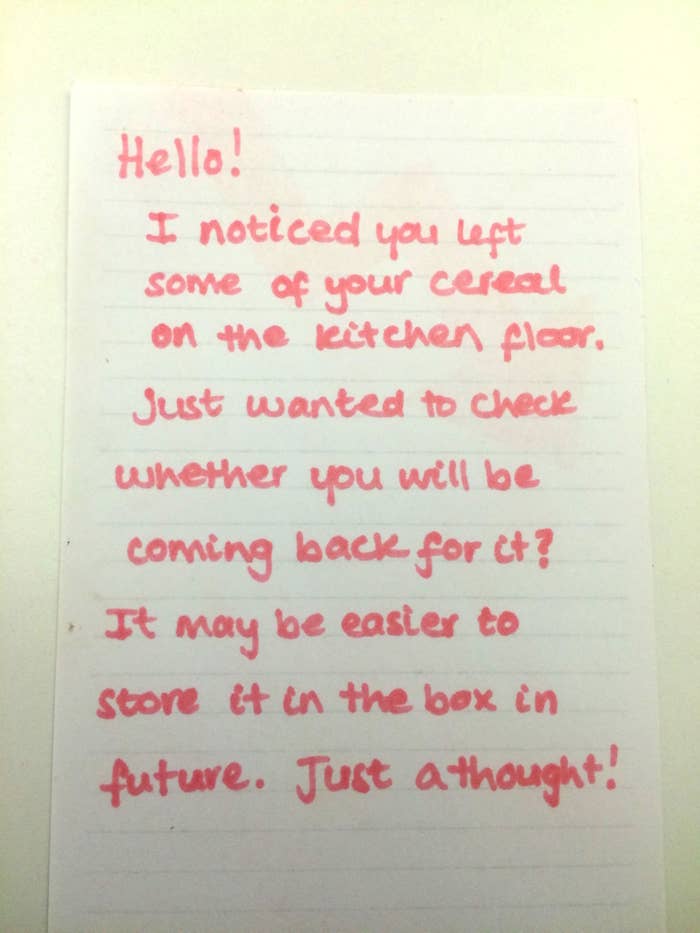 Hello!
I noticed you left
some of your cereal
on the kitchen floor.
Just wanted to check
whether you will be
coming back for it?
It may be easier to
store it in the box in
future. Just a thought!